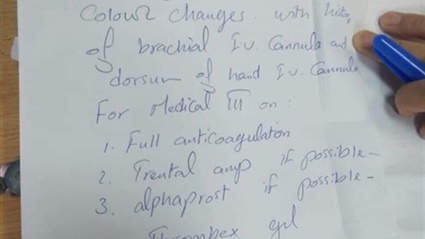 Colour changes. with history
of brachial I.V. Cannula and
dorsum of hand I.V. Cannula
For Medical III on:
1. Full anticoagulation
2. Trental amp if possible-
3. alphaprost if possible-
Thrombex gel